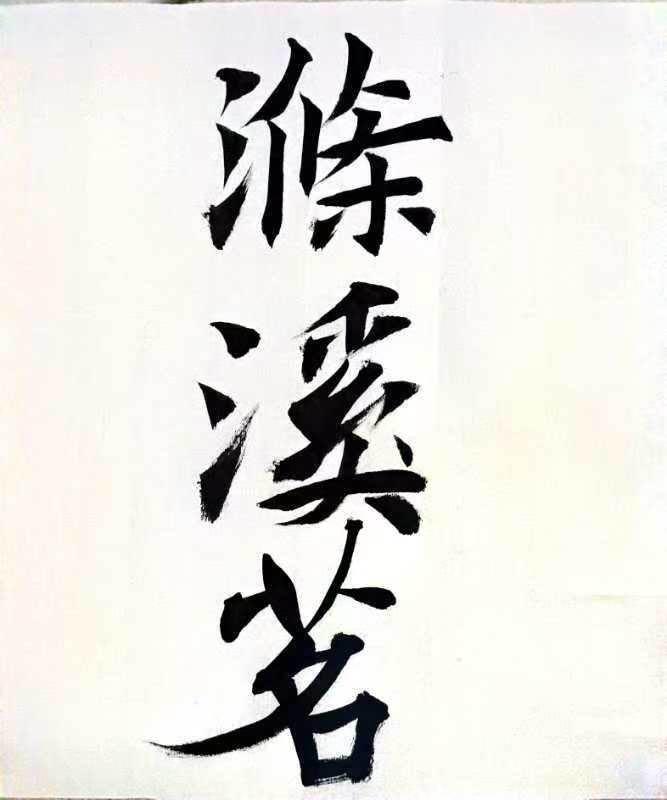 滌溪茗